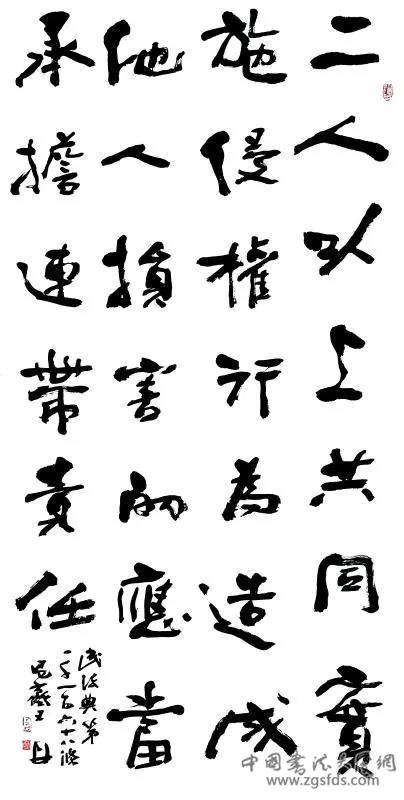 二人以上共同實
施侵權行為造成
他人損害的應當
承擔連帶責任
民法典第
一千一百六十八條
www.zgsfzs.com